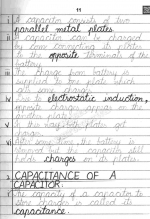 11
i A capacitor consists of two
parallel metal plates.
ii A capacitor can be charged
by connecting its plates
to the opposite terminals of the
battery.
iii The charge from battery is
supplied to one plate which
gets some charge.
iv By electrostatic induction,
opposite charges appear on the
another plate.
v In this way, both plates get
charge.
vi After some time, the battery
removed but the capacitor still
holds charges on its plates.
CAPACITANCE OF A
CAPACITOR:
The capacity of a capacitor to
store charges is called its
capacitance.